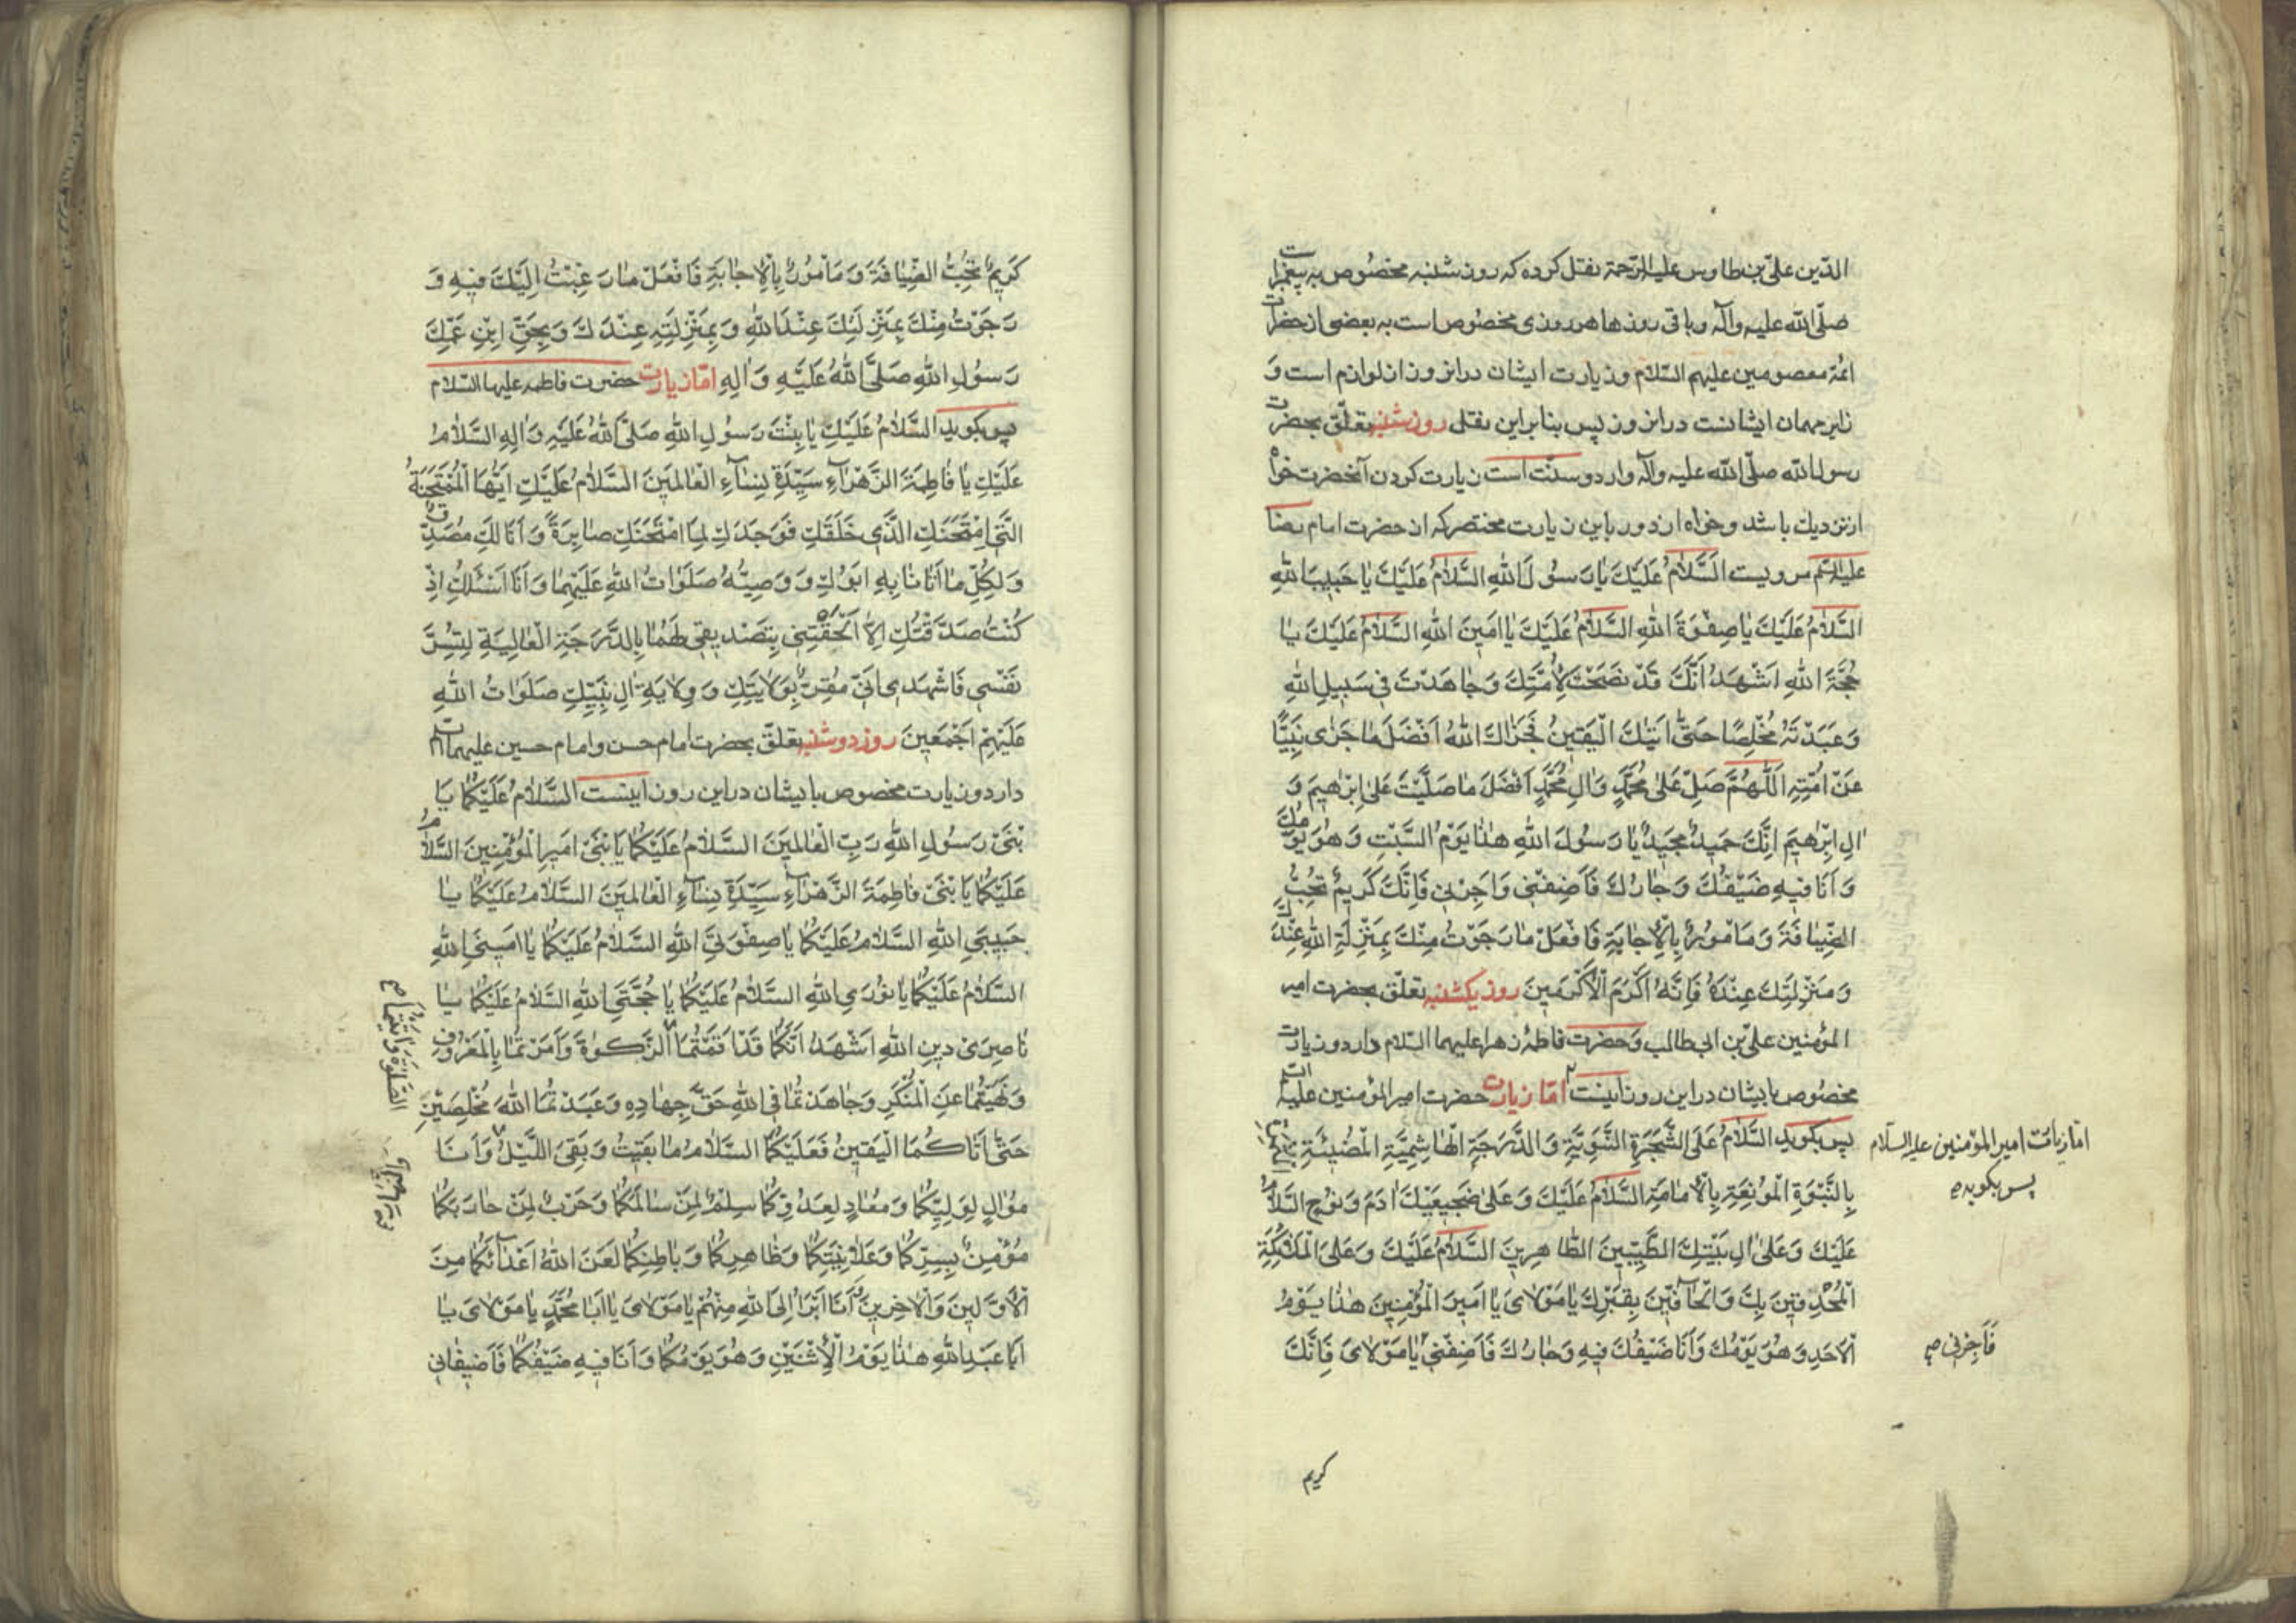 الدّین علیّ بن طاوس علیه الرّحمة نقل کرده که روز شنبه مخصوص به پیغمبر
صلّی الله علیه وآله وباقی روزها هر روزی مخصوص است به بعضی از حضرات
ائمّه معصومین علیهم السّلام وزیارت ایشان در انروز از لوازم است وَ
زایر مهمان ایشانست در انروز پس بنابراین نقل روز شنبه تعلّق بحضرت
رسول الله صلّی الله علیه وآله دارد وسنّت است زیارت کردن آنحضرت خواه
از نزدیک باشد وخواه از دور باین زیارت مختصر که از حضرت امام رضا
علیه السّلم مرویست اَلسَّلامُ عَلَیْكَ یٰا رَسُولَ اللهِ السَّلامُ عَلَیْكَ یٰا حَبِیبَ اللهِ
السَّلامُ عَلَیْكَ یٰا صِفْوَةَ اللهِ السَّلامُ عَلَیْكَ یٰا اَمِینَ اللهِ السَّلامُ عَلَیْكَ یٰا
حُجَّةَ اللهِ اَشْهَدُ اَنَّكَ قَدْ نَصَحْتَ لِاُمَّتِكَ وَجٰاهَدْتَ فِی سَبِیلِ اللهِ
وَعَبَدْتَهُ مُخْلِصًا حَتّٰی اَتٰیكَ الْیَقِینُ فَجَزٰاكَ اللهُ اَفْضَلَ مٰا جَزٰی نَبِیًّا
عَنْ اُمَّتِهِ اَللّٰهُمَّ صَلِّ عَلٰی مُحَمَّدٍ وَاٰلِ مُحَمَّدٍ اَفْضَلَ مٰا صَلَّیْتَ عَلٰی اِبْرٰهِیمَ وَ
اٰلِ اِبْرٰهِیمَ اِنَّكَ حَمِیدٌ مَجِیدٌ یٰا رَسُولَ اللهِ هٰذٰا یَوْمُ السَّبْتِ وَهُوَ یَوْمُكَ
وَاَنَا فِیهِ ضَیْفُكَ وَجٰارُكَ فَاَضِفْنِی وَاَجِرْنِی فَاِنَّكَ كَرِیمٌ تُحِبُّ
الضِّیٰافَةَ وَمَاْمُورٌ بِالْاِجٰابَةِ فَافْعَلْ مٰا رَجَوْتُ مِنْكَ بِمَنْزِلَةِ اللهِ عِنْدَكَ
وَمَنْزِلَتِكَ عِنْدَهُ فَاِنَّهُ اَكْرَمُ الْاَكْرَمِینَ روز یکشنبه تعلّق بحضرت امیر
المؤمنین علیّ بن ابی طالب وَحضرت فاطمهٔ زهرا علیهما السّلام دارد وزیارت
مخصوص بایشان در این روز اینست امّا زیارت حضرت امیرالمؤمنین علیه السّلم
پس بکوید السَّلامُ عَلَی الشَّجَرَةِ النَّبَوِیَّةِ وَالدَّرَجَةِ الْهٰاشِمِیَّةِ الْمُضِیئَةِ
بِالنُّبُوَّةِ الْمُونِقَةِ بِالْاِمٰامَةِ السَّلامُ عَلَیْكَ وَعَلٰی ضَجِیعَیْكَ اٰدَمَ وَنُوحٍ السَّلامُ
عَلَیْكَ وَعَلٰی اٰلِ بَیْتِكَ الطَّیِّبِینَ الطّٰاهِرِینَ السَّلامُ عَلَیْكَ وَعَلَی الْمَلٰائِكَةِ
الْمُحْدِقِینَ بِكَ وَالْحٰافِّینَ بِقَبْرِكَ یٰا مَوْلٰایَ یٰا اَمِیرَ الْمُؤْمِنِینَ هٰذٰا یَوْمُ
الْاَحَدِ وَهُوَ یَوْمُكَ وَاَنَا ضَیْفُكَ فِیهِ وَجٰارُكَ فَاَضِفْنِی یٰا مَوْلٰایَ فَاِنَّكَ
امّا زیارت امیرالمؤمنین علیه السّلام
پس بکوید
فَاَجِرْنِی صح
کریم
كَرِیمٌ تُحِبُّ الضِّیٰافَةَ وَمَاْمُورٌ بِالْاِجٰابَةِ فَافْعَلْ مٰا رَغِبْتُ اِلَیْكَ فِیهِ وَ
رَجَوْتُ مِنْكَ بِمَنْزِلَتِكَ عِنْدَ اللهِ وَبِمَنْزِلَتِهِ عِنْدَكَ وَبِحَقِّ ابْنِ عَمِّكَ
رَسُولِ اللهِ صَلَّی اللهُ عَلَیْهِ وَاٰلِهِ امّا زیارت حضرت فاطمه علیها السّلام
پس بکوید السَّلامُ عَلَیْكِ یٰا بِنْتَ رَسُولِ اللهِ صَلَّی اللهُ عَلَیْهِ وَاٰلِهِ السَّلامُ
عَلَیْكِ یٰا فٰاطِمَةَ الزَّهْرٰاءِ سَیِّدَةِ نِسٰاءِ الْعٰالَمِینَ السَّلامُ عَلَیْكِ اَیَّتُهَا الْمُمْتَحَنَةُ
الَّتِی امْتَحَنَكِ الَّذِی خَلَقَكِ فَوَجَدَكِ لِمَا امْتَحَنَكِ صٰابِرَةً وَاَنَا لَكِ مُصَدِّقٌ
وَلِكُلِّ مٰا اَتٰانٰا بِهِ اَبُوكِ وَوَصِیُّهُ صَلَوٰاتُ اللهِ عَلَیْهِمٰا وَاَنَا اَسْئَلُكِ اِذْ
كُنْتُ صَدَّقْتُكِ اِلّٰا اَلْحَقْتِنِی بِتَصْدِیقِی لَهُمٰا بِالدَّرَجَةِ الْعٰالِیَةِ لِتُسَرَّ
نَفْسِی فَاشْهَدِی اَنِّی مُقِرٌّ بِوَلٰایَتِكِ وَوِلٰایَةِ اٰلِ نَبِیِّكِ صَلَوٰاتُ اللهِ
عَلَیْهِمْ اَجْمَعِینَ روز دوشنبه تعلّق بحضرت امام حسن وامام حسین علیهما السّلام
دارد وزیارت مخصوص بایشان در این روز اینست السَّلامُ عَلَیْكُمٰا یَا
بْنَیْ رَسُولِ اللهِ رَبِّ الْعٰالَمِینَ السَّلامُ عَلَیْكُمٰا یَا بْنَیْ اَمِیرِ الْمُؤْمِنِینَ السَّلامُ
عَلَیْكُمٰا یَا بْنَیْ فٰاطِمَةَ الزَّهْرٰاءِ سَیِّدَةِ نِسٰاءِ الْعٰالَمِینَ السَّلامُ عَلَیْكُمٰا یٰا
حَبِیبَیِ اللهِ السَّلامُ عَلَیْكُمٰا یٰا صِفْوَتَیِ اللهِ السَّلامُ عَلَیْكُمٰا یٰا اَمِینَیِ اللهِ
السَّلامُ عَلَیْكُمٰا یٰا نُورَیِ اللهِ السَّلامُ عَلَیْكُمٰا یٰا حُجَّتَیِ اللهِ السَّلامُ عَلَیْكُمٰا یٰا
نٰاصِرَیْ دِینِ اللهِ اَشْهَدُ اَنَّكُمٰا قَدْ اَقَمْتُمَا الزَّكٰوةَ وَاَمَرْتُمٰا بِالْمَعْرُوفِ
وَنَهَیْتُمٰا عَنِ الْمُنْكَرِ وَجٰاهَدْتُمٰا فِی اللهِ حَقَّ جِهٰادِهِ وَعَبَدْتُمَا اللهَ مُخْلِصَیْنِ
حَتّٰی اَتٰاكُمَا الْیَقِینُ فَعَلَیْكُمَا السَّلامُ مٰا بَقِیتُ وَبَقِیَ اللَّیْلُ وَاَنَا
مُوٰالٍ لِوَلِیِّكُمٰا وَمُعٰادٍ لِعَدُوِّكُمٰا سِلْمٌ لِمَنْ سٰالَمَكُمٰا وَحَرْبٌ لِمَنْ حٰارَبَكُمٰا
مُؤْمِنٌ بِسِرِّكُمٰا وَعَلٰانِیَتِكُمٰا وَظٰاهِرِكُمٰا وَبٰاطِنِكُمٰا لَعَنَ اللهُ اَعْدٰائَكُمٰا مِنَ
الْاَوَّلِینَ وَالْاٰخِرِینَ اَنَا اَبْرَاُ اِلَی اللهِ مِنْهُمْ یٰا مَوْلٰایَ یٰا اَبٰا مُحَمَّدٍ یٰا مَوْلٰایَ یٰا
اَبٰا عَبْدِ اللهِ هٰذٰا یَوْمُ الْاِثْنَیْنِ وَهُوَ یَوْمُكُمٰا وَاَنَا فِیهِ ضَیْفُكُمٰا فَاَضِیفٰانِی
الصَّلٰوةَ وَاٰتَیْتُمَا صح